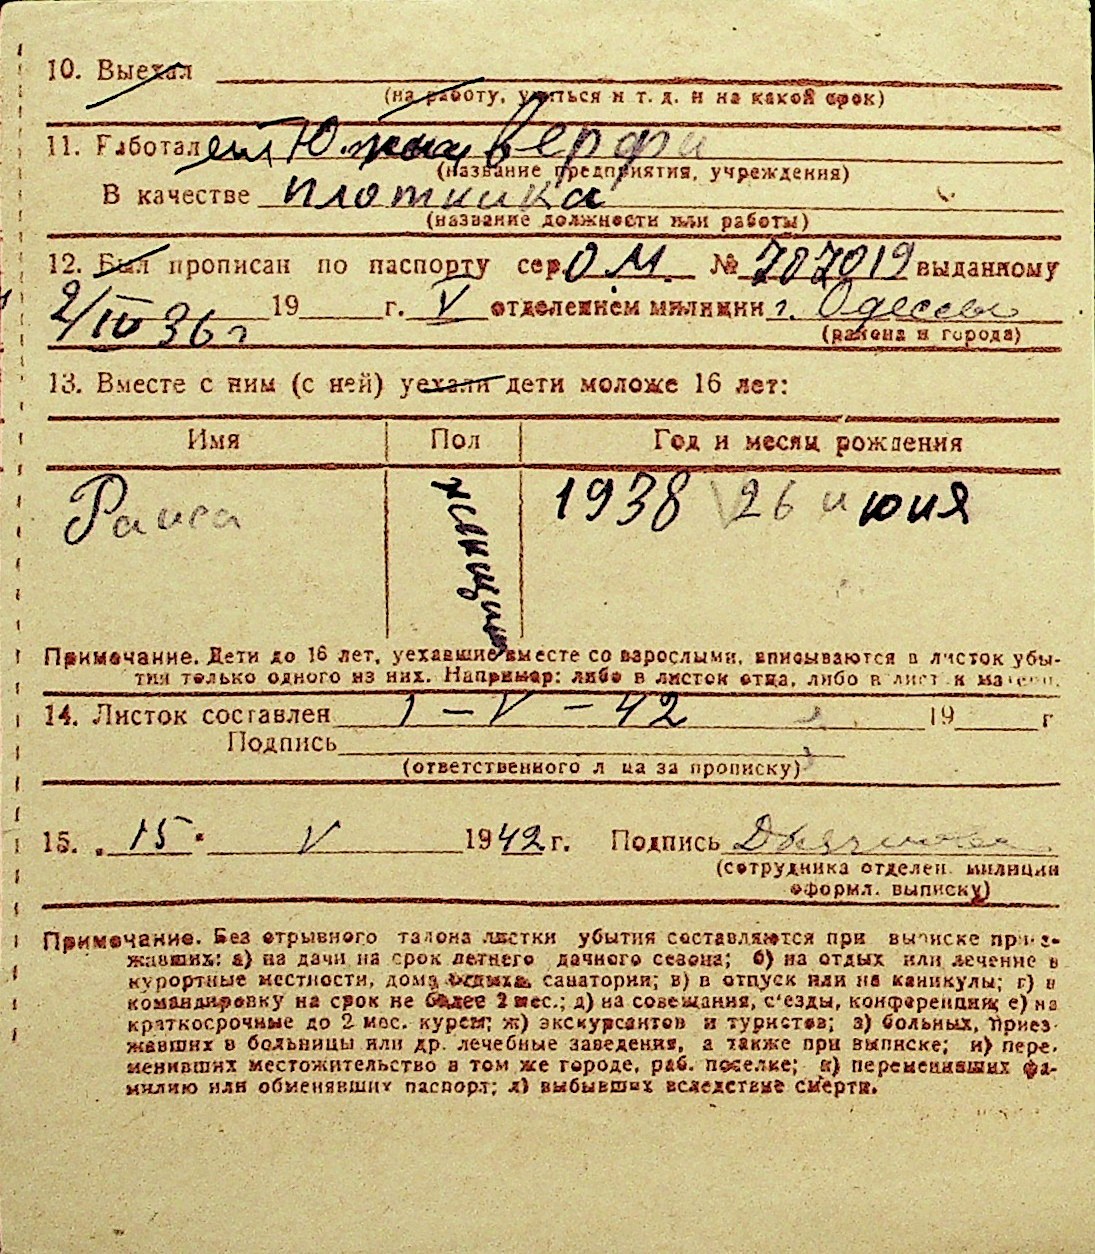 10. Выехал
(на работу, учиться и т. д. и на какой срок)
11. Работал ет Южная верфи
(название предприятия, учреждения)
В качестве плотника
(название должности или работы)
12. Был прописан по паспорту сер. ОМ. № 707019 выданному
9/IV 36 г 19 г. V отделением милиции г. Одессы
(района и города)
13. Вместе с ним (с ней) уехали дети моложе 16 лет:
Имя Пол Год и месяц рождения
Раиса женщина 1938 26 июня
Примечание. Дети до 16 лет, уехавшие вместе со взрослыми, вписываются в листок убы-
тия только одного из них. Например: либо в листок отца, либо в листок матери.
14. Листок составлен 1 – V – 42 19 г
Подпись
(ответственного лица за прописку)
15. „15“ V 1942 г. Подпись
(сотрудника отделен. милиции
оформл. выписку)
Примечание. Без отрывного талона листки убытия составляются при выписке приез-
жавших: а) на дачи на срок летнего дачного сезона; б) на отдых или лечение в
курортные местности, дома отдыха, санатории; в) в отпуск или на каникулы; г) в
командировку на срок не более 2 мес.; д) на совещания, с'езды, конференции; е) на
краткосрочные до 2 мес. курсы; ж) экскурсантов и туристов; з) больных, приез-
жавших в больницы или др. лечебные заведения, а также при выписке; и) пере-
менивших местожительство в том же городе, раб. поселке; к) переменивших фа-
милию или обменявших паспорт; л) выбывших вследствие смерти.